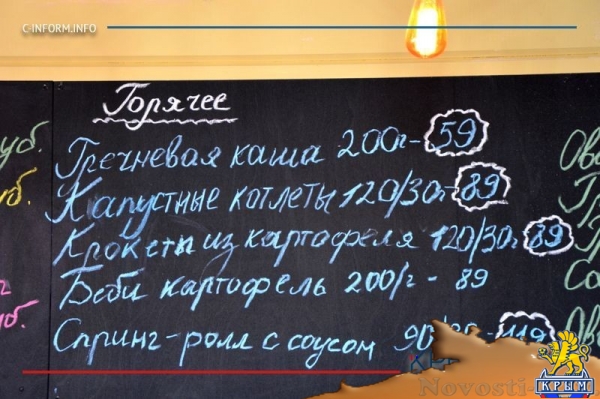 C-INFORM.INFO
Горячее
Гречневая каша 200г- 59
Капустные котлеты 120/30г- 89
Крокеты из картофеля 120/30г 89
Беби картофель 200/г - 89
Спринг-ролл с соусом 90/30 119
Novosti-
КРЫМ